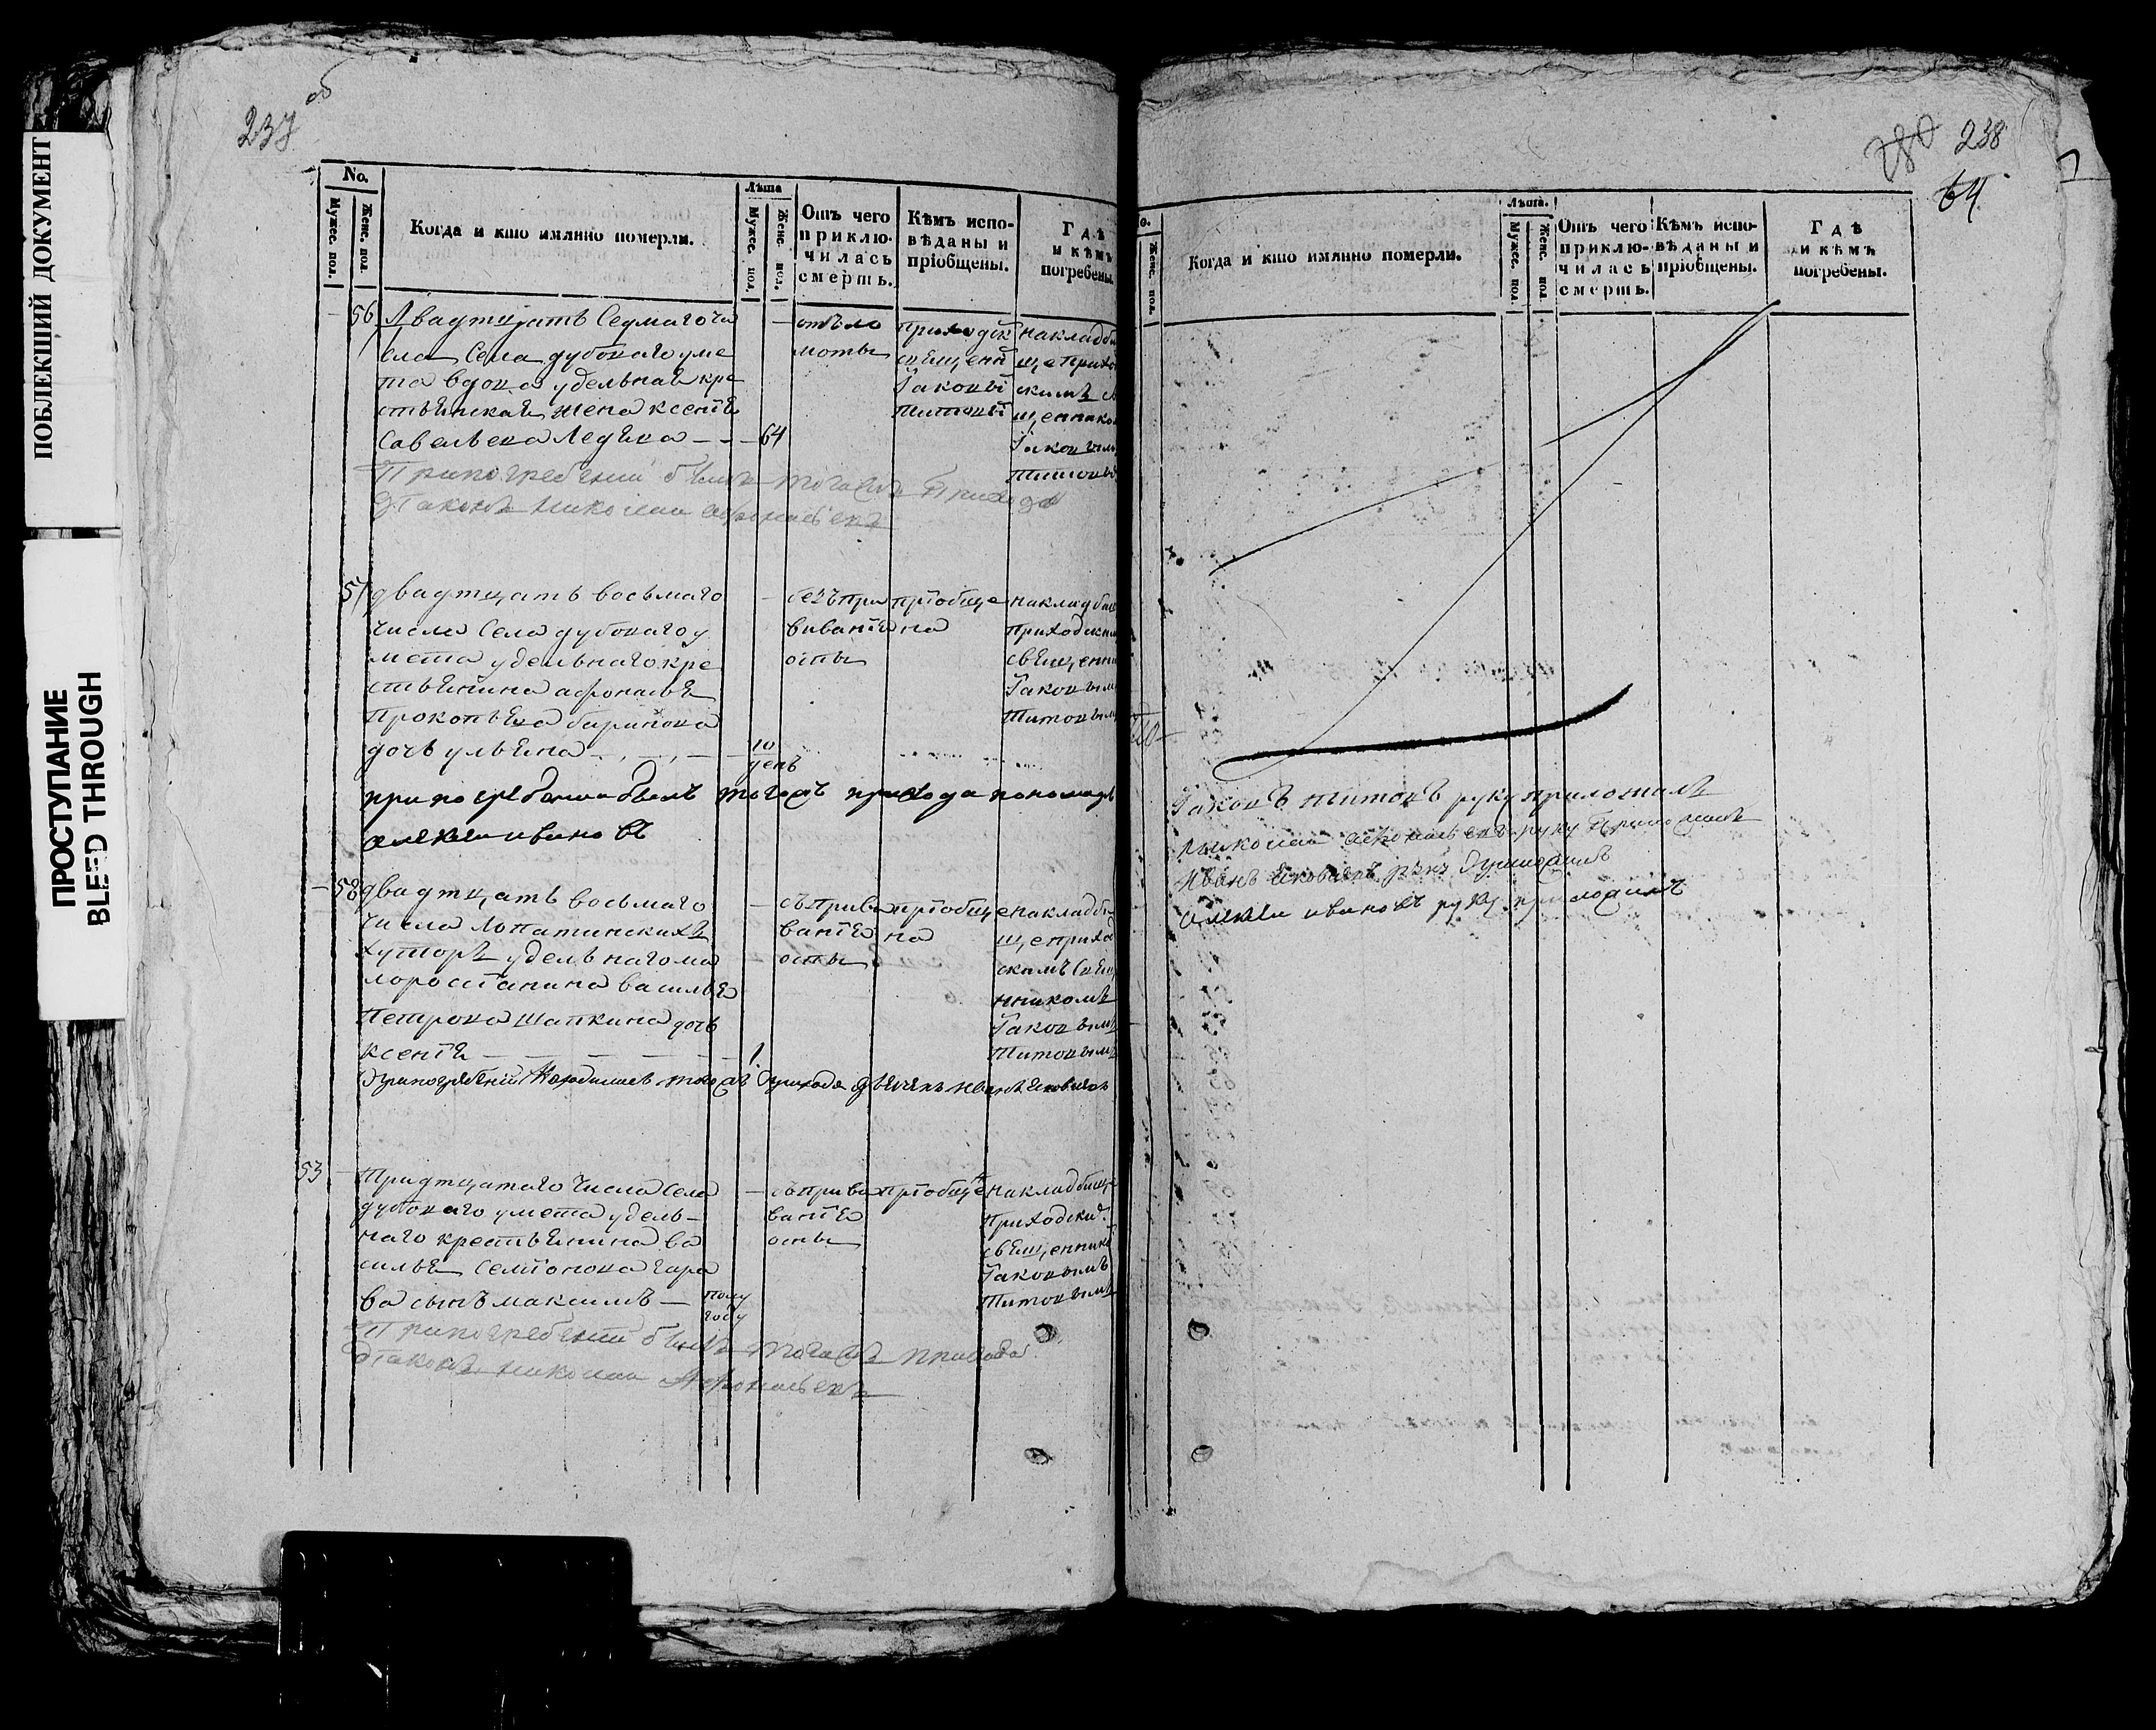 ПОБЛЕКШИЙ ДОКУМЕНТ
ПРОСТУПАНИЕ
BLEED THROUGH
237 об
No.
Мужес. пол.
Женс. пол.
Когда и кто имянно померли.
Лѣта
Мужес. пол.
Женс. пол.
Отъ чего приключилась смерть.
Кѣмъ исповѣданы и пріобщены.
Гдѣ и кѣмъ погребены.
56 Двадтцать Седмаго чи
сла Села дубоваго уме
та вдова удельная кре
стьянская жена ксенія
Савельева – – – 64
отъ ло
моты
приходск
свящ, енн
Іаковъ
Титовъ
на кладби
ще прихо
скимъ
щ, еннико
Іаковымъ
Титовы
При погребеніи былъ тогожъ Прихода
Діаконъ николаи афонасьевъ
57 двадтцать восьмаго
числа Села дубоваго у
мета удельнаго кре
стьянина афонасья
Прокопьева баринова
дочь ульяна – , – , – 10
день
безъ при
виванія
оспы
пріобще
на
на кладби
приходским
свящ, енни
Іаковым
Титовым
при погребении былъ тогожъ прихода пономарь
алексеи ивановъ
– 58 двадтцать восьмаго
числа Лопатинскихъ
хуторъ удельнаго ма
лоросіянина василья
Петрова Шапкина дочь
ксенія – – – – – 1
съ приви
ванія
оспы
пріобще
на
на кладби
ще приход
скимъ свящ
нникомъ
Іаковымъ
Титовымъ
При погребеніи находился тогожъ прихода дьячекъ иванъ яковлевъ
53 – Тридтцатаго числа Села
дубоваго умета удель–
наго крестьянина ва
силья Семіонова
ва сынъ максимъ – полу
году
съ приви
ванія
оспы
пріобще
на кладбище
приходски
священнико
Іаковымъ
Титовымъ
При погребеніи былъ тогожъ прихода
діаконъ николаи Афонасьевъ
280 238
64
No.
Женс. пол.
Когда и кто имянно померли.
Лѣта.
Мужес. пол.
Женс. пол.
Отъ чего приключилась смерть.
Кѣмъ исповѣданы и пріобщены.
Гдѣ и кѣмъ погребены.
Іаковъ титовъ руку приложилъ
николаи афонасьевъ руку приложилъ
иванъ яковлевъ руку приложилъ
алексеи ивановъ руку приложилъ